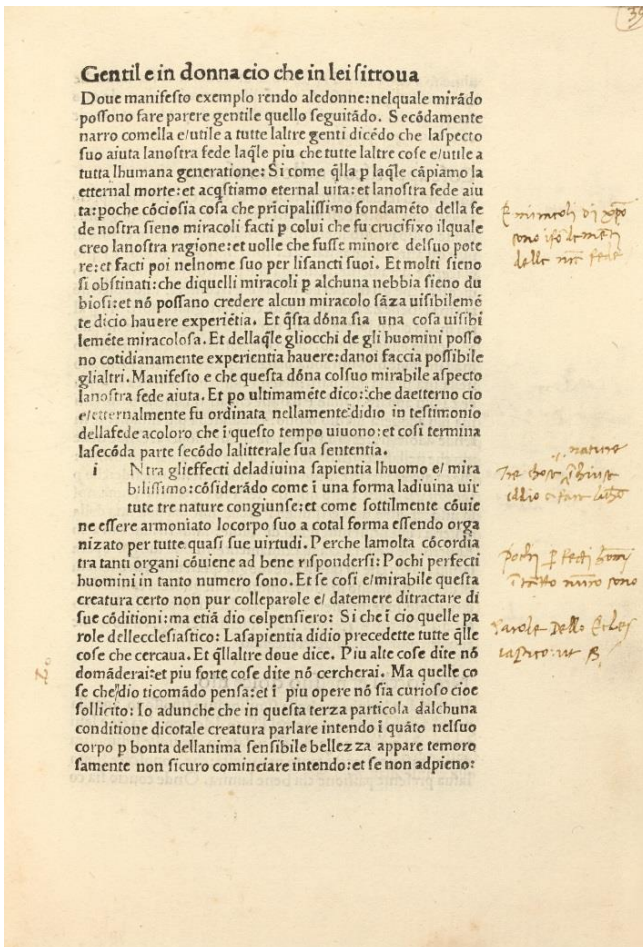 39
Gentil e in donna cio che in lei si troua
Doue manifesto exemplo rendo aledonne:nelquale mirãdo
possono fare parere gentile quello seguitãdo. Secõdamente
narro comella e/utile a tutte laltre genti dicẽdo che laspecto
suo aiuta lanostra fede laq̃le piu che tutte laltre cose e/utile a
tutta lhumana generatione: Si come q̃lla p laq̃le cãpiamo la
etternal morte:et acq̃stiamo eternal uita:et lanostra fede aiu
ta:poche cõciosia cosa che pricipalissimo fondamẽto della fe
de nostra sieno miracoli facti p colui che fu crucifixo ilquale
creo lanostra ragione:et uolle che fusse minore delsuo pote
re:et facti poi nelnome suo per lisancti suoi. Et molti sieno
si obstinati:che diquelli miracoli p alchuna nebbia sieno du
biosi:et nõ possano credere alcun miracolo sãza uisibilemẽ
te dicio hauere experiẽtia. Et q̃sta dõna sia una cosa uisibi
lemẽte miracolosa. Et dellaq̃le gliocchi de gli huomini posso
no cotidianamente experientia hauere:danoi faccia possibile
glialtri. Manifesto e che questa dõna colsuo mirabile aspecto
lanostra fede aiuta. Et po ultimamẽte dico:che daetterno cio
e/etternalmente fu ordinata nellamente didio in testimonio
dellafede acoloro che ĩ questo tempo uiuono:et cosi termina
lasecõda parte secõdo lalitterale sua sententia.
i Ntra glieffecti deladiuina sapientia lhuomo e/ mira
bilissimo:cõsiderãdo come ĩ una forma ladiuina uir
tute tre nature congiunse:et come sottilmente cõuie
ne essere armoniato locorpo suo a cotal forma essendo orga
nizato per tutte quasi sue uirtudi. Perche lamolta cõcordia
tra tanti organi cõuiene ad bene rispondersi: Pochi perfecti
huomini in tanto numero sono. Et se cosi e/mirabile questa
creatura certo non pur colleparole e/ datemere ditractare di
sue cõditioni:ma etiã dio colpensiero: Si che ĩ cio quelle pa
role dellecclesiastico: Lasapientia didio precedette tutte q̃lle
cose che cercaua. Et q̃llaltre doue dice. Piu alte cose dite nõ
domãderai:et piu forte cose dite nõ cercherai. Ma quelle co
se che dio ticomãdo pensa:et ĩ piu opere nõ sia curioso cioe
sollicito: Io adunche che in questa terza particola dalchuna
conditione dicotale creatura parlare intendo ĩ quãto nelsuo
corpo p bonta dellanima sensibile bellezza appare temoro
samente non sicuro cominciare intendo:et se non adpieno:
miracoli di
sono
delle
nature
Tre chose
iddio
Pochi
sono
Parole dello Ecles
iastico